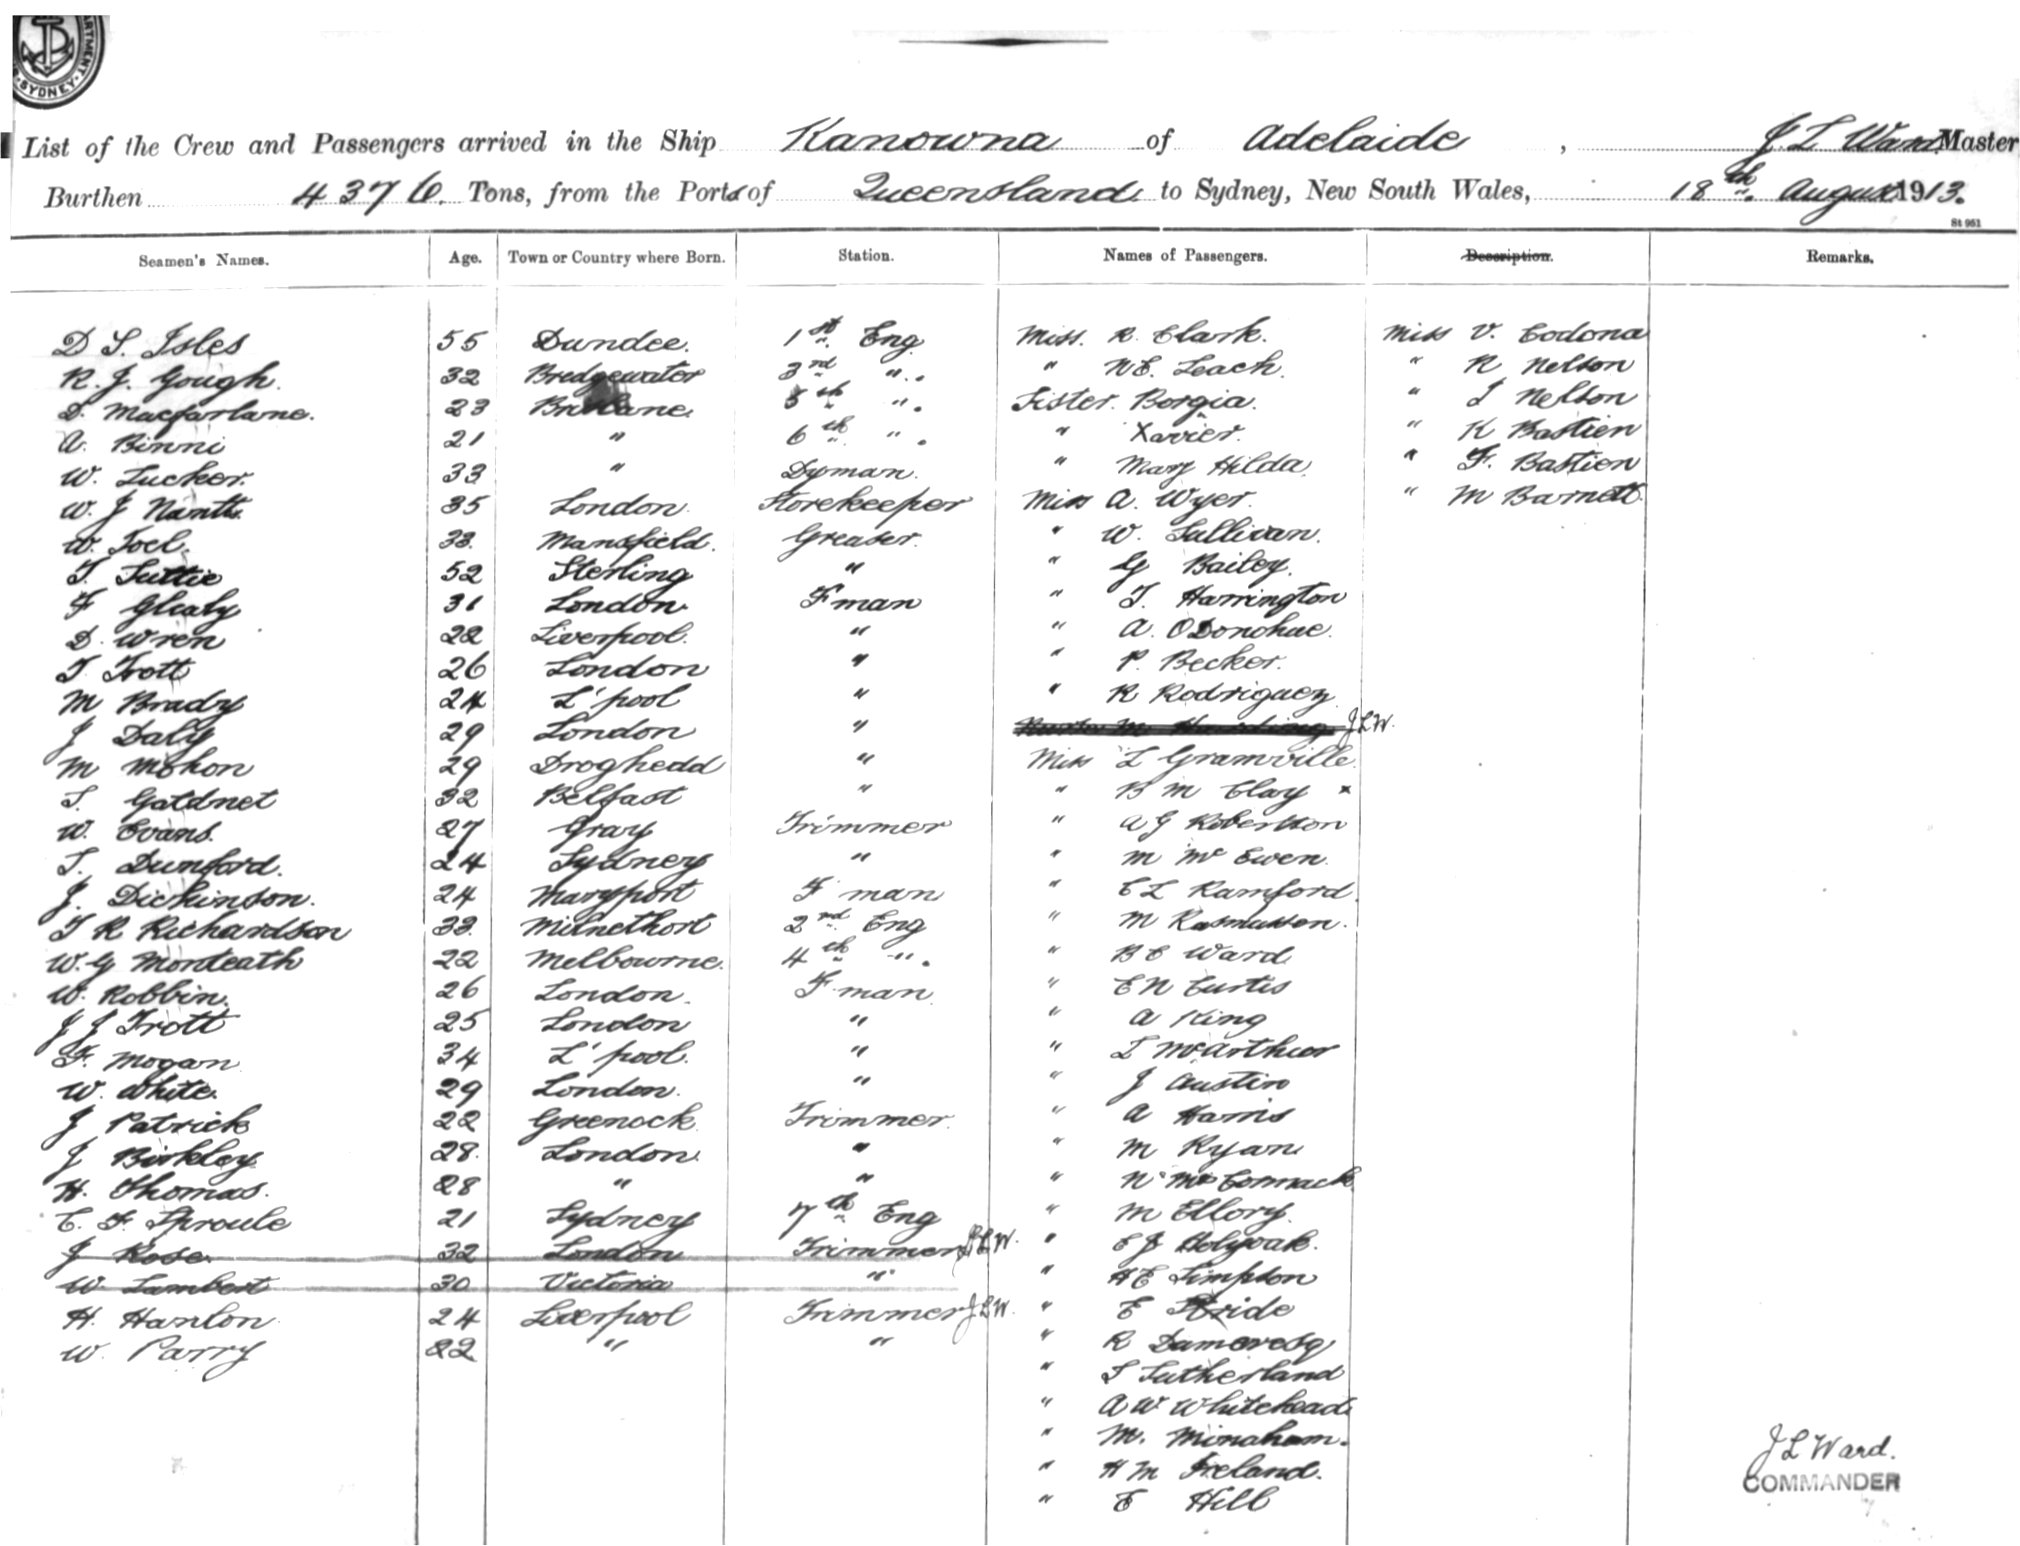 ARTMENT · SYDNEY ·
List of the Crew and Passengers arrived in the Ship Kanowna of Adelaide, J. L Ward Master
Burthen 4376. Tons, from the Ports of Queensland to Sydney, New South Wales, 18th August 1913.
St 951
Seamen's Names. Age. Town or Country where Born. Station. Names of Passengers. Description. Remarks.
D S. Isles 55 Dundee. 1st Eng Miss. R. Clark. Miss V. Codona
R. J. Gough. 32 Bredgewater 3rd " . " N E. Leach. " R Nelson
D. Macfarlane. 23 Brisbane. 5th " . Sister. Borgia. " I Nelson
A. Binni 21 " 6th " . " Xavier. " K Bastien
W. Tucker. 33 " Dyman. " Mary Hilda. " F. Bastien
W. J 35 London. Storekeeper Miss A. Wyer. " M Barnett.
W. Joel. 33. Mansfield. Greaser. " W. Sullivan.
T. Suttie 52 Sterling " " G Bailey.
F 31 London. Fman " T. Harrington
D. Wren 22 Liverpool. " " A. O'Donohue.
T Trott 26 London " " P. Becker.
M Brady 24 L'pool " " R Rodriguez
J Daly 29 London " J L W.
M Mohon 29 Droghedd " Miss L Gramville.
T. Gatdnet 32 Belfast " " B M Clay x
W. Evans. 27 Gray Trimmer " A G Robertson
T. Dunford. 24 Sydney " " M McEwen.
J. Dickinson. 24 Maryport F man " E L Ramford.
T R Richardson 33. Milnethort 2nd Eng " M Rasmussen.
W. G Monteath 22 Melbourne. 4th " . " B E Ward
W. Robbin. 26 London. F man " E N Curtis
J J Trott 25 London " " A King
F. Mogan 34 L'pool. " " L McArthur
W. White. 29 London. " " J Austin
J Patrick 22 Greenock Trimmer. " A Harris
J Birkley 28. London. " " M Ryan
H. Thomas. 28 " " " N McCormack
C. F. Sproule 21 Sydney 7th Eng " M Ellory.
J Rose. 32 London Trimmer J L W. " E J Holyoak.
W. Lambert 30 Victoria " " H E Simpson
H. Hanlon 24 Liverpool Trimmer J L W. " E Pride
W. Parry 22 " " " R Dameresq
" S Sutherland
" A W Whitehead
" M. Minaham.
" H M Ireland.
" E Hill
J L Ward.
COMMANDER